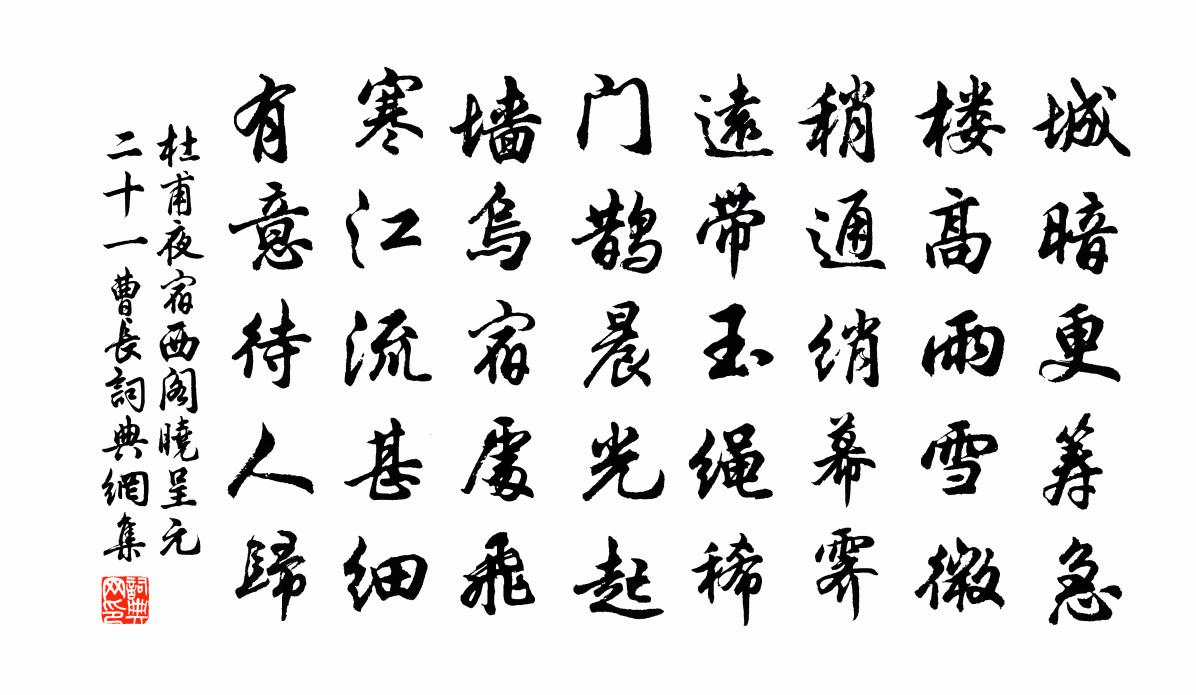 城暗更筹急
楼高雨雪微
稍通绡幕霁
遠带玉绳稀
门鹊晨光起
墙烏宿處飛
寒江流甚细
有意待人歸
杜甫夜宿西阁曉呈元
二十一曹長詞典網集
詞典
网印